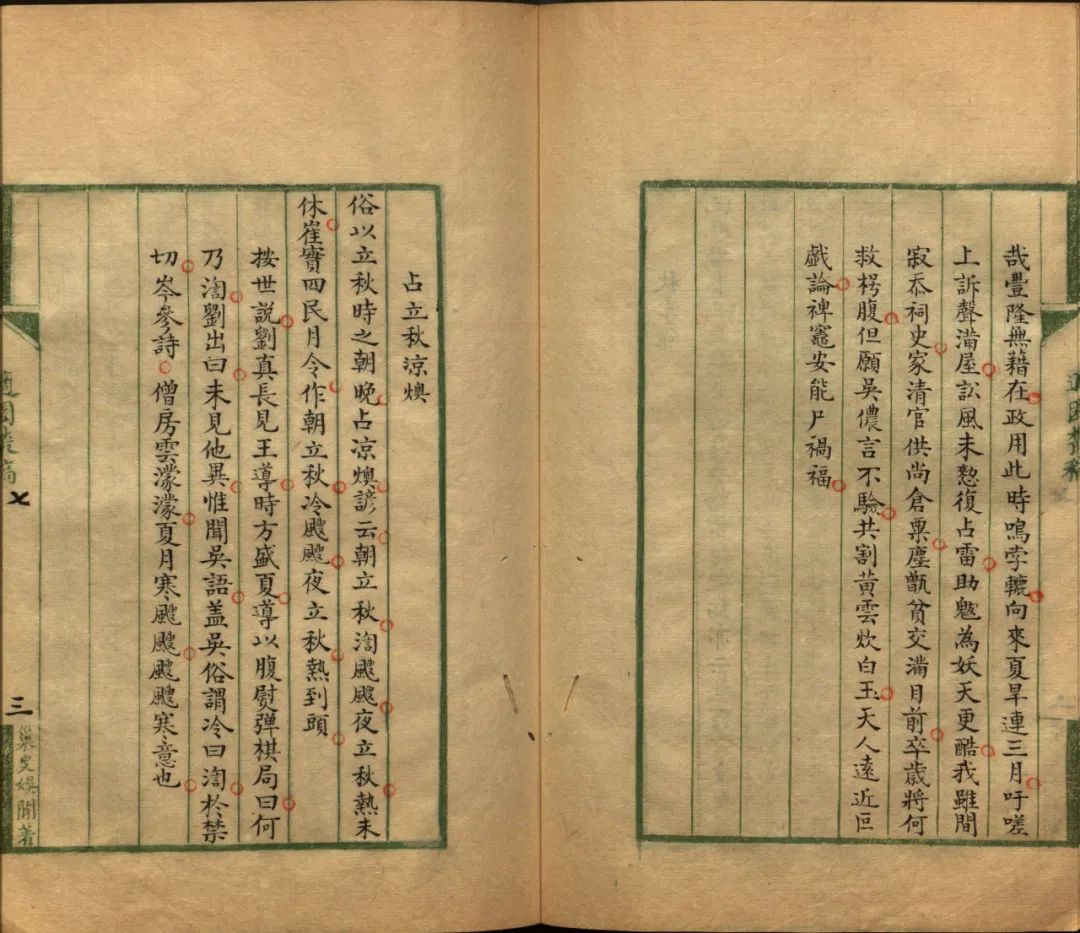 哉豐隆無藉在政用此時鳴孛轆向來夏旱連三月吁嗟
上訴聲滿屋訟風未愁復占雷助魃為妖天更酷我雖閒
寂忝祠史家清官供尚倉粟塵甑貧交滿目前卒歲將何
救枵腹但願吳儂言不驗共割黃雲炊白玉天人遠近叵
戲論裨竈安能尸禍福
占立秋涼燠
俗以立秋時之朝晚占涼燠諺云朝立秋渹颼颼夜立秋熱未
休崔寔四民月令作朝立秋冷颼颼夜立秋熱到頭
按世說劉真長見王導時方盛夏導以腹熨彈棋局曰何
乃渹劉出曰未見他異惟聞吳語蓋吳俗謂冷曰渹於禁
切岑參詩僧房雲濛濛夏月寒颼颼颼颼寒意也
三
巢叟娛閒著